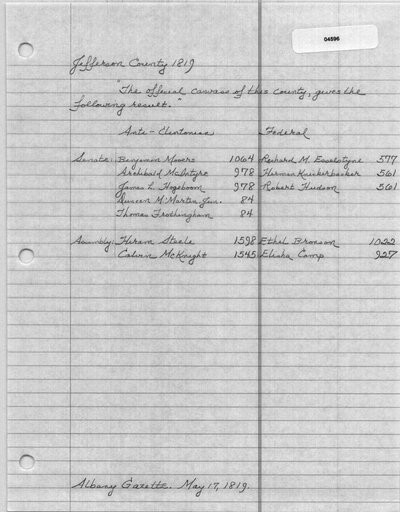 04596
Jefferson County 1819
"The official canvass of this county, gives the
following result."
Anti-Clintonian Federal
Senate: Benjamin Mooers 1064 Richard M. Esselstyne 577
Archibald McIntyre 978 Herman Knickerbacker 561
James L. Hogeboom 978 Robert Hudson 561
Duncan McMartin Jun. 84
Thomas Frothingham 84
Assembly: Hiram Steele 1598 Ethel Bronson 1022
Calvin McKnight 1545 Elisha Camp 927
Albany Gazette. May 17, 1819.